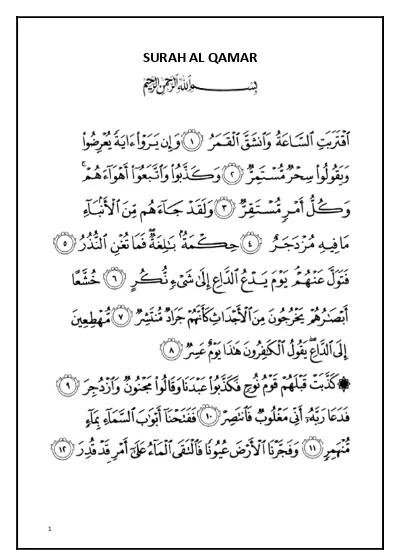 SURAH AL QAMAR
بِسْمِ اللَّهِ الرَّحْمَٰنِ الرَّحِيمِ
ٱقْتَرَبَتِ ٱلسَّاعَةُ وَٱنشَقَّ ٱلْقَمَرُ ١ وَإِن يَرَوْا۟ ءَايَةً يُعْرِضُوا۟
وَيَقُولُوا۟ سِحْرٌ مُّسْتَمِرٌّ ٢ وَكَذَّبُوا۟ وَٱتَّبَعُوٓا۟ أَهْوَآءَهُمْ ۚ
وَكُلُّ أَمْرٍ مُّسْتَقِرٌّ ٣ وَلَقَدْ جَآءَهُم مِّنَ ٱلْأَنۢبَآءِ
مَا فِيهِ مُزْدَجَرٌ ٤ حِكْمَةٌۢ بَٰلِغَةٌ ۖ فَمَا تُغْنِ ٱلنُّذُرُ ٥
فَتَوَلَّ عَنْهُمْ ۘ يَوْمَ يَدْعُ ٱلدَّاعِ إِلَىٰ شَىْءٍ نُّكُرٍ ٦ خُشَّعًا
أَبْصَٰرُهُمْ يَخْرُجُونَ مِنَ ٱلْأَجْدَاثِ كَأَنَّهُمْ جَرَادٌ مُّنتَشِرٌ ٧ مُّهْطِعِينَ
إِلَى ٱلدَّاعِ ۖ يَقُولُ ٱلْكَٰفِرُونَ هَٰذَا يَوْمٌ عَسِرٌ ٨
۞ كَذَّبَتْ قَبْلَهُمْ قَوْمُ نُوحٍ فَكَذَّبُوا۟ عَبْدَنَا وَقَالُوا۟ مَجْنُونٌ وَٱزْدُجِرَ ٩
فَدَعَا رَبَّهُۥٓ أَنِّى مَغْلُوبٌ فَٱنتَصِرْ ١٠ فَفَتَحْنَآ أَبْوَٰبَ ٱلسَّمَآءِ بِمَآءٍ
مُّنْهَمِرٍ ١١ وَفَجَّرْنَا ٱلْأَرْضَ عُيُونًا فَٱلْتَقَى ٱلْمَآءُ عَلَىٰٓ أَمْرٍ قَدْ قُدِرَ ١٢
1